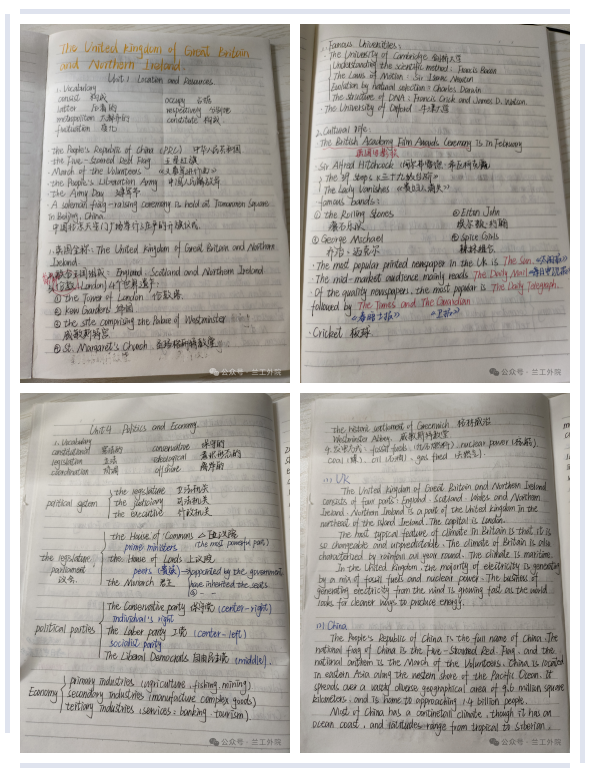 The United Kingdom of Great Britain
and Northern Ireland.
Unit 1 Location and Resources.
1. Vocabulary
consist 构成
occupy 占据
latter 后者的
respectively 分别地
metropolitan 大都市的
constitute 构成
fluctuation 变化
· The People's Republic of China (PRC) 中华人民共和国
· the Five-Starred Red Flag 五星红旗
· March of the Volunteers 《义勇军进行曲》
· the People's Liberation Army 中国人民解放军
· the Army Day 建军节
· A solemn flag-raising ceremony is held at Tiananmen Square
in Beijing, China.
英国全称: The United Kingdom of Great Britain and Northern
Ireland.
England, Scotland and Northern Ireland
(London)
① the Tower of London 伦敦塔
② Kew Gardens 邱园
③ the site comprising the Palace of Westminster
威敏斯特宫
④ St. Margaret's Church
公众号 · 兰工外院
1. Famous Universities:
The University of Cambridge 剑桥大学
Understanding the scientific method: Francis Bacon
The Laws of Motion: Sir Isaac Newton
Evolution by natural selection: Charles Darwin
The structure of DNA: Francis Crick and James D. Watson
· The University of Oxford 牛津大学
2. Cultural life:
· The British Academy Film Awards Ceremony is in February
· Sir Alfred Hitchcock
The 39 Steps 《三十九级台阶》
The Lady Vanishes 《贵妇人消失》
famous bands:
① the Rolling Stones
② Elton John
滚石乐队
③ George Michael
④ Spice Girls
乔治·迈克尔
辣妹组合
· The most popular printed newspaper in the UK is The Sun. 《太阳报》
· The mid-market audience mainly reads The Daily Mail 《每日邮报》
· Of the quality newspapers, the most popular is The Daily Telegraph,
followed by The Times and The Guardian
《泰晤士报》 《卫报》
· Cricket 板球
公众号 · 兰工外院
Unit 4 Politics and Economy.
1. Vocabulary
constitutional
conservative 保守的
legislation 立法
ideological 意识形态的
coordination 协调
offshore 离岸的
political system
the legislature 立法机关
the judiciary 司法机关
the executive 行政机关
the legislature
parliament
议会
the House of Commons 下议院
prime ministers (the most powerful part)
the House of Lords 上议院
peers (贵族) appointed by the government
the Monarch 君主 have inherited the seats
political parties
The Conservative party 保守党 (center-right)
individual's right
The Labor party 工党 (center-left)
socialist party
The Liberal Democrats 自由民主党 (middle).
Economy
primary industries (agriculture, fishing, mining)
secondary industries (manufacture complex goods)
tertiary industries (services: banking, tourism).
公众号 · 兰工外院
The historic settlement of Greenwich 格林威治
Westminster Abbey. 威敏斯特教堂
fossil fuels (化石燃料), nuclear power (核能).
coal (煤), oil (石油), gas fired (天然气).
UK
The United Kingdom of Great Britain and Northern Ireland
consists of four parts: England, Scotland, Wales and Northern
Ireland. Northern Ireland is a part of the United Kingdom in the
northeast of the island Ireland. The capital is London.
The most typical feature of climate in Britain is that it is
so changeable and unpredictable. The climate in Britain is also
characterized by rainfall all year round. The climate is maritime.
In the United Kingdom, the majority of electricity is generated
by a mix of fossil fuels and nuclear power. The business of
generating electricity from the wind is growing fast as the world
looks for cleaner ways to produce energy.
China
The People's Republic of China is the full name of China. The
national flag of China is the Five-Starred Red Flag, and the
national anthem is the March of the Volunteers. China is located
in eastern Asia along the western shore of the Pacific Ocean. It
spreads over a vastly diverse geographical area of 9.6 million square
kilometers, and is home to approaching 1.4 billion people.
Most of China has a continental climate, though it has an
ocean coast, and latitudes range from tropical to Siberian.
公众号 · 兰工外院